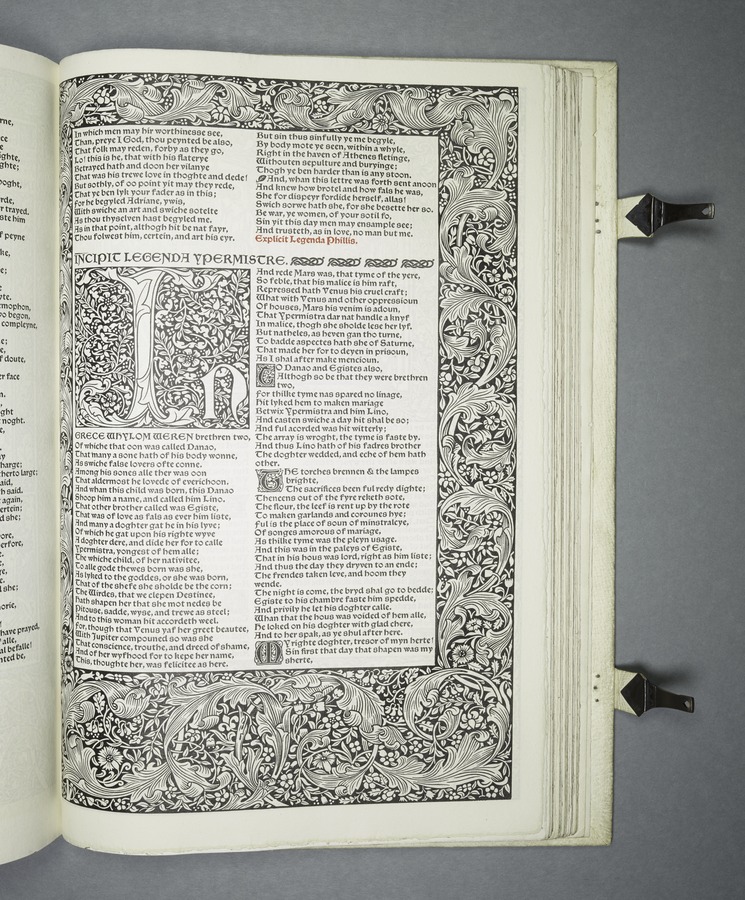 rne,
ce
ghte,
ghte;
oght,
rde,
r trayed.
ste him
f peyne
ke,
e;
yte.
mophon,
o begon,
compleyne,
e;
e,
f doute,
er face
ght
noght.
harge;
therto large;
said,
h said.
again,
ertein;
d she;
ore,
erfore,
orie,
have prayed,
alle,
al befalle!
nted be,
In which men may hir worthinesse see,
Than, preye I God, thou peynted be also,
That folk may reden, forby as they go,
Lo! this is he, that with his flaterye
Betrayed hath and doon her vilanye
That was his trewe love in thoghte and dede!
But sothly, of oo point yit may they rede,
That ye ben lyk your fader as in this;
For he begyled Adriane, ywis,
With swiche an art and swiche sotelte
As thou thyselven hast begyled me.
As in that point, althogh hit be nat fayr,
Thou folwest him, certein, and art his eyr.
But sin thus sinfully ye me begyle,
My body mote ye seen, within a whyle,
Right in the haven of Athenes fletinge,
Withouten sepulture and buryinge;
Thogh ye ben harder than is any stoon.
And, whan this lettre was forth sent anoon
And knew how brotel and how fals he was,
She for dispeyr fordide herself, allas!
Swich sorwe hath she, for she besette her so.
Be war, ye women, of your sotil fo,
Sin yit this day men may ensample see;
And trusteth, as in love, no man but me.
Explicit Legenda Phillis.
INCIPIT LEGENDA YPERMISTRE.
In
GRECE WHYLOM WEREN brethren two,
Of whiche that oon was called Danao,
That many a sone hath of his body wonne,
As swiche false lovers ofte conne.
Among his sones alle ther was oon
That aldermost he lovede of everichoon.
And whan this child was born, this Danao
Shoop him a name, and called him Lino.
That other brother called was Egiste,
That was of love as fals as ever him liste,
And many a doghter gat he in his lyve;
Of which he gat upon his righte wyve
A doghter dere, and dide her for to calle
Ypermistra, yongest of hem alle;
The whiche child, of her nativitee,
To alle gode thewes born was she,
As lyked to the goddes, or she was born,
That of the shefe she sholde be the corn;
The Wirdes, that we clepen Destinee,
Hath shapen her that she mot nedes be
Pitouse, sadde, wyse, and trewe as steel;
And to this woman hit accordeth weel.
For, though that Venus yaf her greet beautee,
With Jupiter compouned so was she
That conscience, trouthe, and dreed of shame,
And of her wyfhood for to kepe her name,
This, thoughte her, was felicitee as here.
And rede Mars was, that tyme of the yere,
So feble, that his malice is him raft,
Repressed hath Venus his cruel craft;
What with Venus and other oppressioun
Of houses, Mars his venim is adoun,
That Ypermistra dar nat handle a knyf
In malice, thogh she sholde lese her lyf.
But natheles, as heven gan tho turne,
To badde aspectes hath she of Saturne,
That made her for to deyen in prisoun,
As I shal after make mencioun.
TO Danao and Egistes also,
Althogh so be that they were brethren
two,
For thilke tyme nas spared no linage,
Hit lyked hem to maken mariage
Betwix Ypermistra and him Lino,
And casten swiche a day hit shal be so;
And ful acorded was hit witterly;
The array is wroght, the tyme is faste by.
And thus Lino hath of his fadres brother
The doghter wedded, and eche of hem hath
other.
THE torches brennen & the lampes
brighte,
The sacrifices been ful redy dighte;
Thencens out of the fyre reketh sote,
The flour, the leef is rent up by the rote
To maken garlands and corounes hye;
Ful is the place of soun of minstralcye,
Of songes amorous of mariage,
As thilke tyme was the pleyn usage.
And this was in the paleys of Egiste,
That in his hous was lord, right as him liste;
And thus the day they dryven to an ende;
The frendes taken leve, and hoom they
wende.
The night is come, the bryd shal go to bedde;
Egiste to his chambre faste him spedde,
And privily he let his doghter calle.
Whan that the hous was voided of hem alle,
He loked on his doghter with glad chere,
And to her spak, as ye shul after here.
My righte doghter, tresor of myn herte!
Sin first that day that shapen was my
sherte,